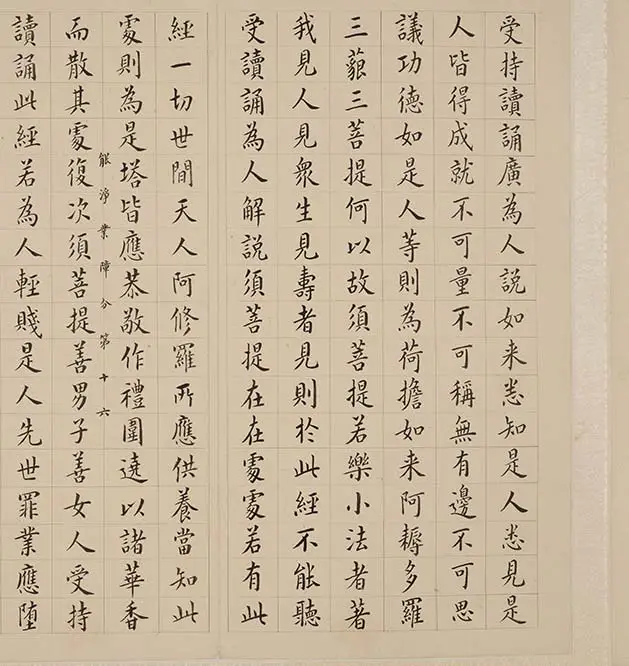 受持讀誦廣為人説如来悉知是人悉見是
人皆得成就不可量不可稱無有邊不可思
議功德如是人等則為荷擔如来阿耨多羅
三藐三菩提何以故須菩提若樂小法者著
我見人見衆生見壽者見則於此經不能聽
受讀誦為人解説須菩提在在處處若有此
經一切世間天人阿修羅所應供養當知此
處則為是塔皆應恭敬作禮圍遶以諸華香
能淨業障分第十六
而散其處復次須菩提善男子善女人受持
讀誦此經若為人輕賤是人先世罪業應堕